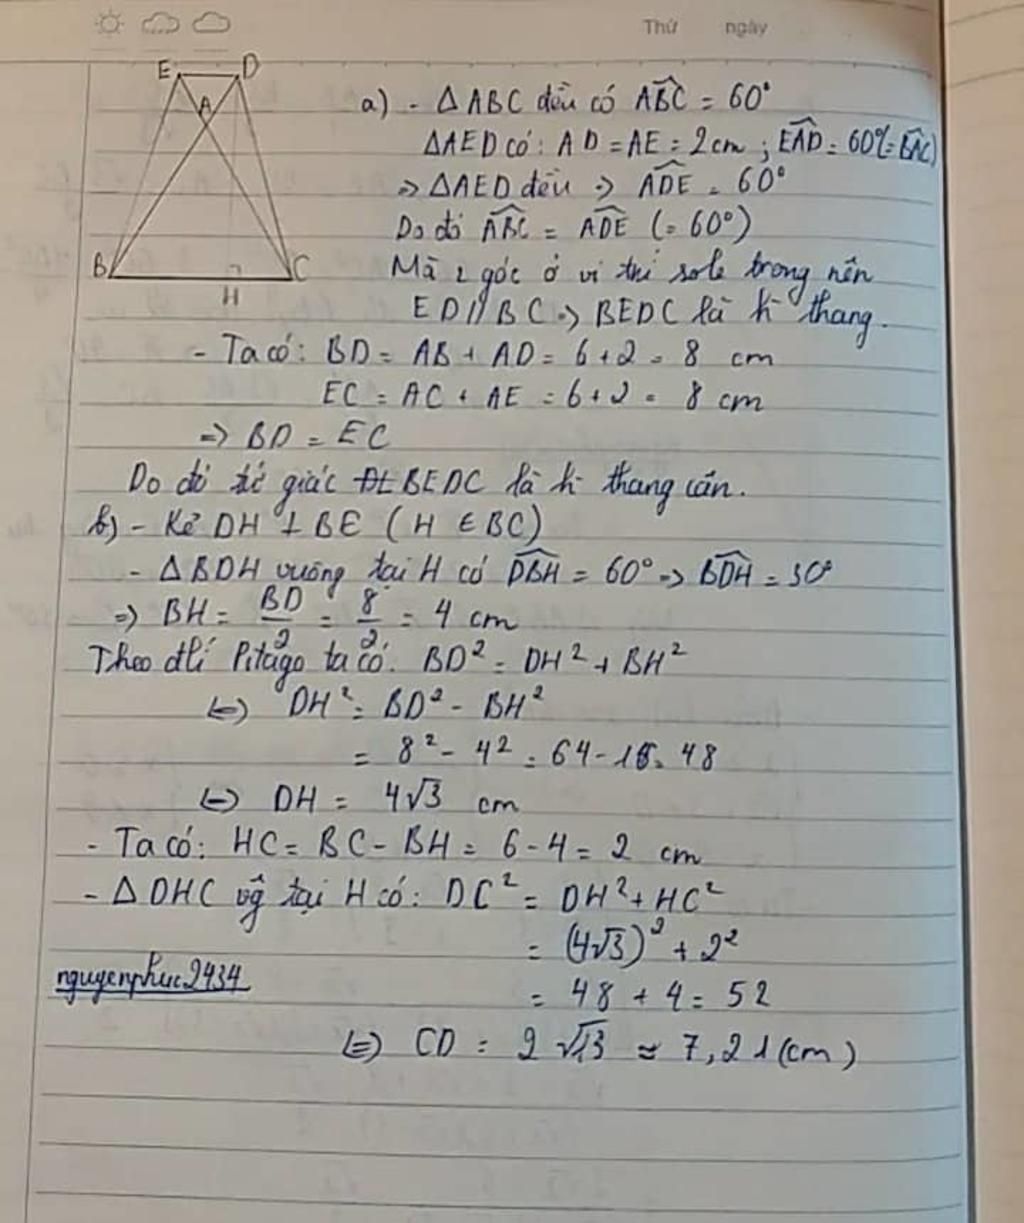 Thứ ngày
E D
A
B C
H
a) - ΔABC đều có \widehat{ABC} = 60°
ΔAED có: AD = AE = 2cm ; \widehat{EAD} = 60°(=\widehat{BAC})
=> ΔAED đều => \widehat{ADE} = 60°
Do đó \widehat{ABC} = \widehat{ADE} (= 60°)
Mà 2 góc ở vị trí sole trong nên
ED // BC => BEDC là h thang.
- Ta có: BD = AB + AD = 6 + 2 = 8 cm
EC = AC + AE = 6 + 2 = 8 cm
=> BD = EC
Do đó tứ giác BEDC là h thang cân.
b) - Kẻ DH ⊥ BE ( H ∈ BC)
- ΔBDH vuông tại H có \widehat{DBH} = 60° => \widehat{BDH} = 30°
=> BH = BD/2 = 8/2 = 4 cm
Theo đlí Pitago ta có: BD² = DH² + BH²
<=> DH² = BD² - BH²
= 8² - 4² = 64 - 16 = 48
<=> DH = 4√3 cm
- Ta có: HC = BC - BH = 6 - 4 = 2 cm
- ΔDHC vg tại H có: DC² = DH² + HC²
= (4√3)² + 2²
nguyenphuc2434
= 48 + 4 = 52
<=> CD = 2√13 ≈ 7,21 (cm)